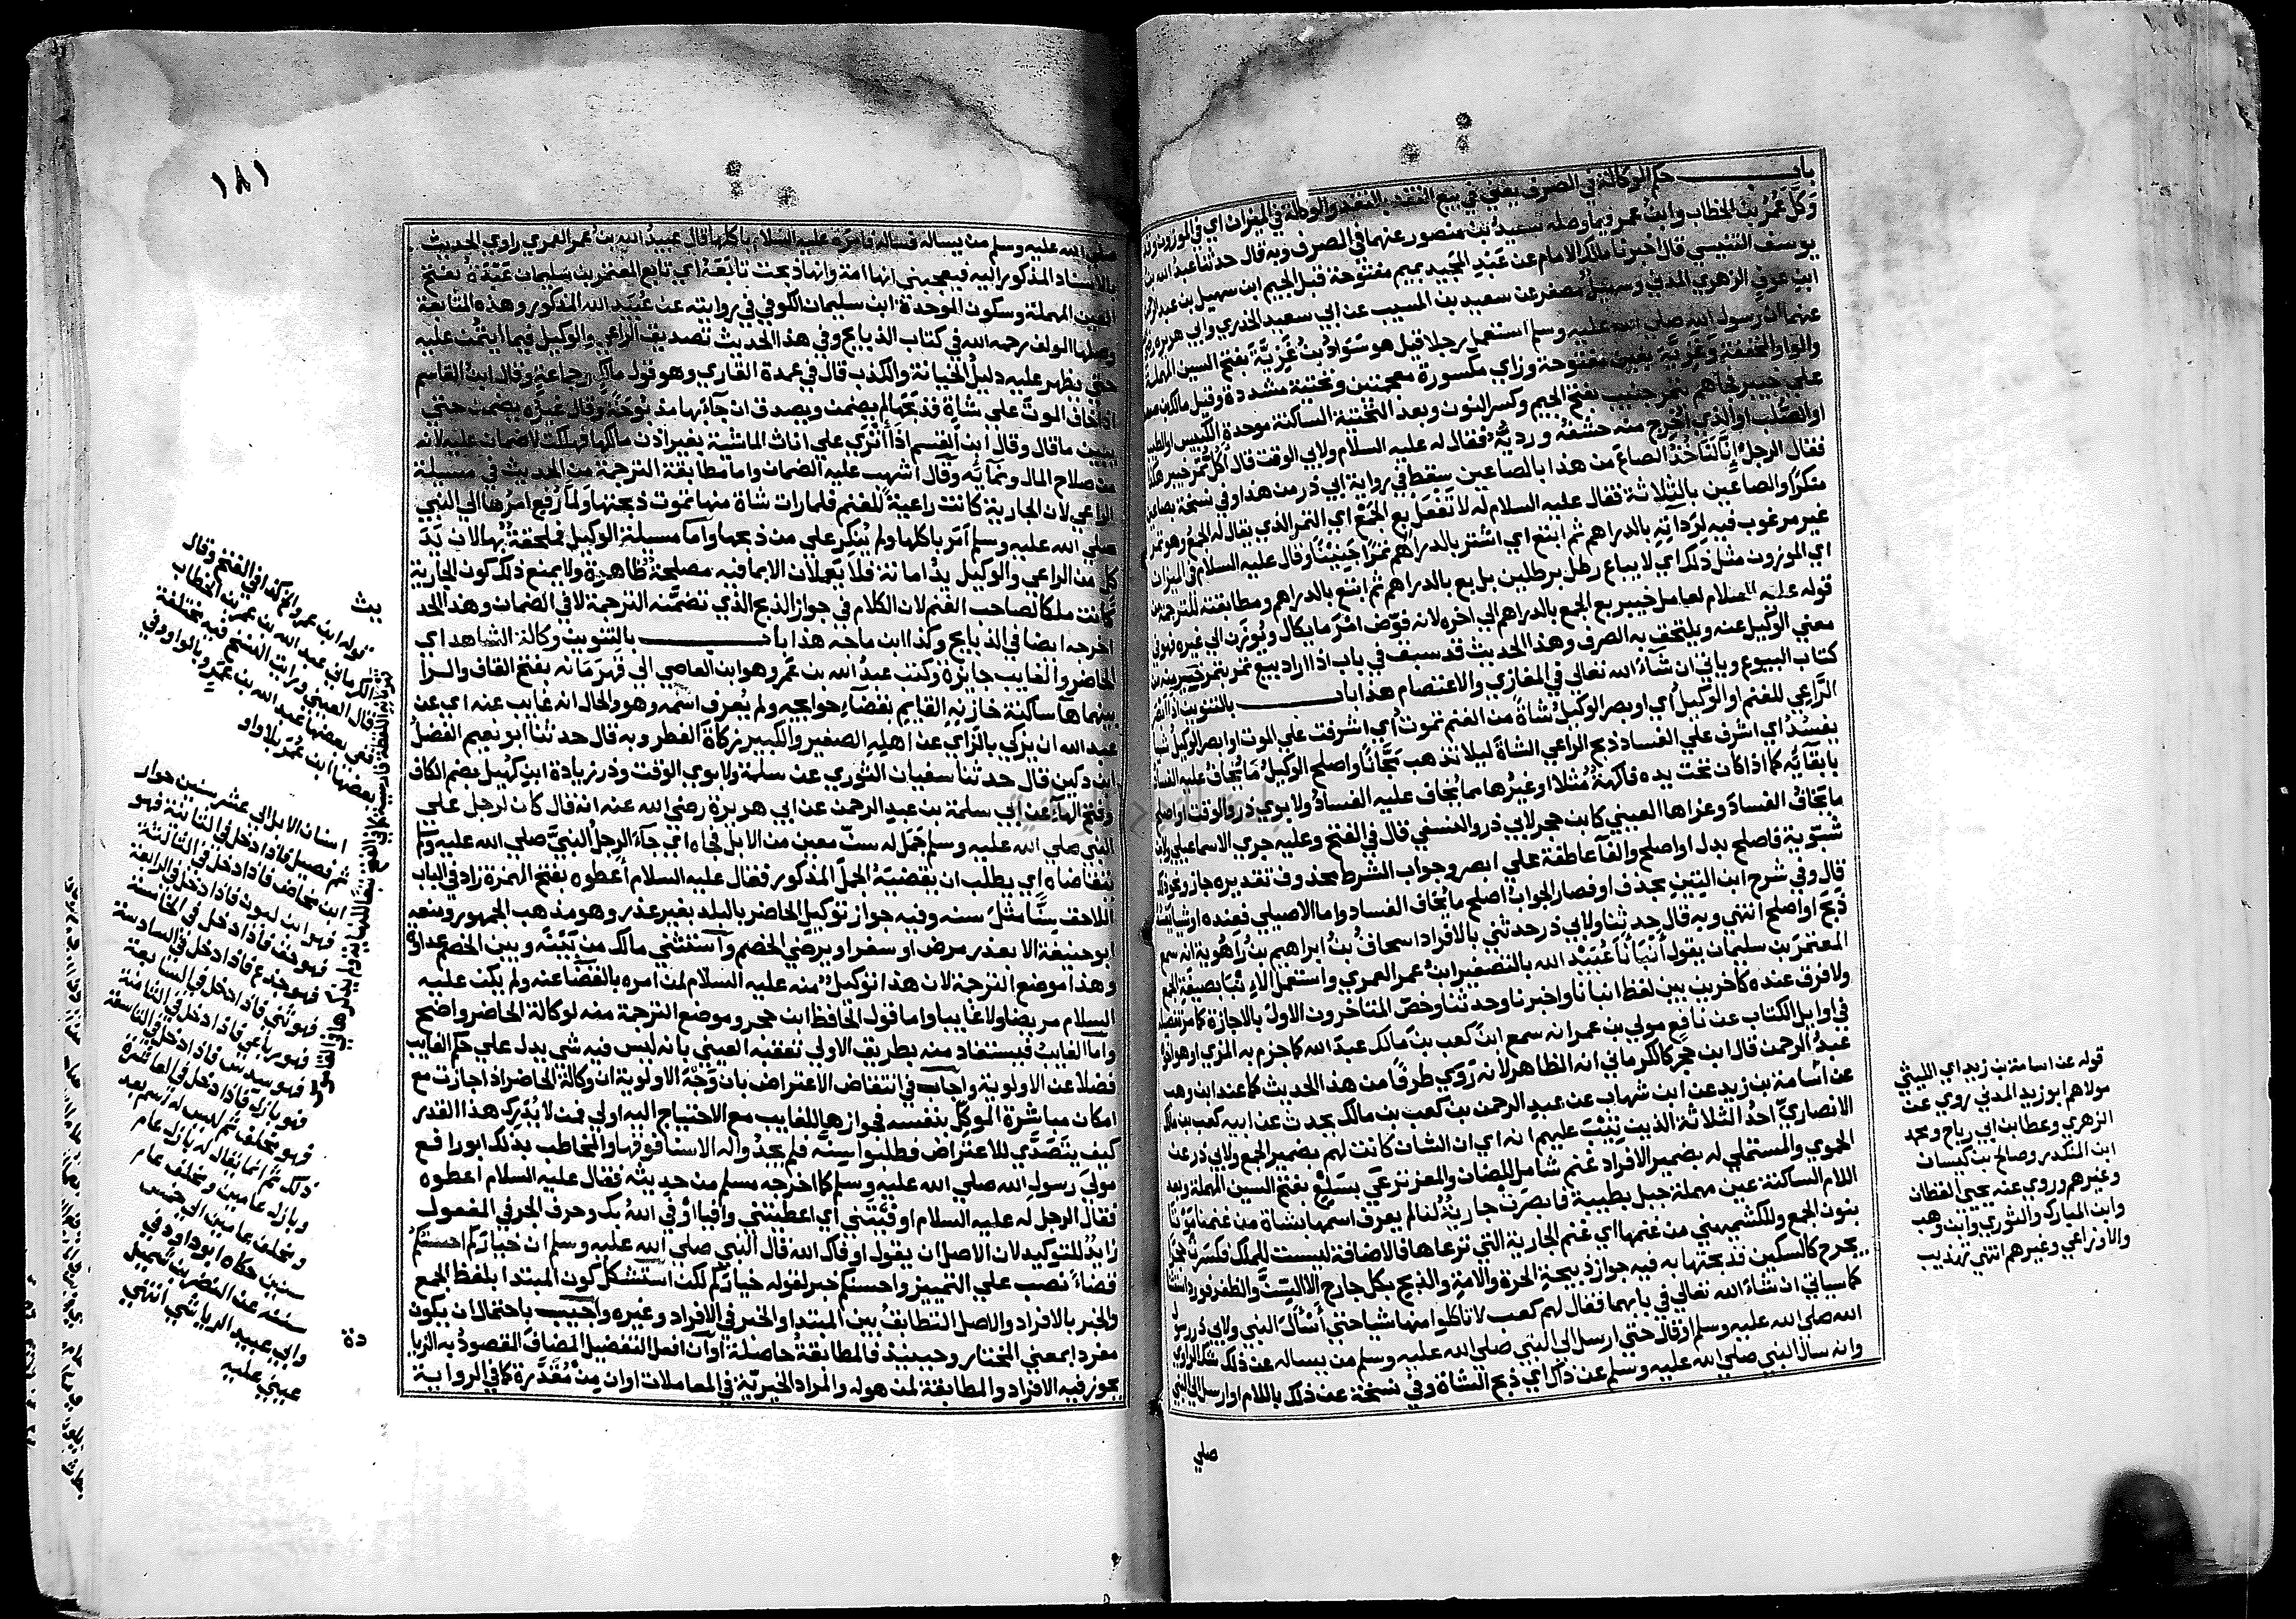 باب حكم الوكالة في الصرف يعني في بيع النقد بالنقد والوكالة في الميزان اي في الموزون وقد
وكّل عمر بن الخطاب وابن عمر فيما وصله سعيد بن منصور عنهما في الصرف وبه قال حدثنا عبد الله بن
يوسف التنيسي قال اخبرنا مالك الامام عن عبد المجيد بميم مفتوحة قبل الجيم ابن سهيل بن عبد الرحمن
ابن عوف الزهري المدني وسهيل مصغر عن سعيد بن المسيب عن ابي سعيد الخدري وابي هريرة رضي
عنهما ان رسول الله صلي الله عليه وسلم استعمل رجلا قيل هو سواد بن غزية بفتح السين المهملة
والواو المخففة وغزية بغين مفتوحة وزاي مكسورة معجمتين وتحتية مشددة وقيل مالك بن صعصعة
علي خيبر فجاهم بتمر جنيب بفتح الجيم وكسر النون وبعد التحتية الساكنة موحدة الكبيس او الطيب
او الصلب او الذي اخرج منه حشفه ورديّه فقال له عليه السلام ولابي الوقت قال اكل تمر خيبر هكذا
فقال الرجل انا لناخذ الصاع من هذا بالصاعين سقط في رواية ابي ذر من هذا وفي نسخة بصاعين
منكرا والصاعين بالثلاثة فقال عليه السلام له لا تفعل بع الجمع اي التمر الذي يقال له الجمع وهو تمر
غير مرغوب فيه لرداته بالدراهم ثم ابتع اي اشتر بالدراهم تمرا جنيبا وقال عليه السلام في الميزان
اي الموزون مثل ذلك اي لا يباع رطل برطلين بل بع بالدراهم ثم ابتع بالدراهم ومطابقته للترجمة من
قوله عليه السلام لعامل خيبر بع الجمع بالدراهم الي اخره لانه فوّض امر ما يكال ويوزن الي غيره فهو في
معني الوكيل عنه ويلتحق به الصرف وهذا الحديث قد سبق في باب اذا اراد بيع تمر بتمر خير منه من
كتاب البيوع وياتي ان شاء الله تعالي في المغازي والاعتصام هذا باب بالتنوين اذا ابصر
الراعي للغنم او الوكيل اي او بصر الوكيل شاة من الغنم تموت اي اشرفت علي الموت او ابصر الوكيل شيا
يفسد اي اشرف علي الفساد ذبح الراعي الشاة ليلا تذهب مجّانا واصلح الوكيل ما يخاف عليه الفساد
بابقايه كما اذا كان تحت يده فاكهة مثلا او غيرها مما يخاف عليه الفساد ولابوي ذر والوقت او اصلح
ما يخاف الفساد وعزاها العيني كابن حجر لابي ذر والنسفي قال في الفتح وعليه جري الاسماعيلي ولابن
شبويه فاصلح بدل او اصلح والفا عاطفة علي ابصر وجواب الشرط محذوف تقديره جاز ونحو ذلك
قال وفي شرح ابن التين بحذف او فصار الجواب اصلح ما يخاف الفساد واما الاصيلي فعنده او شيا يفسد
ذبح او اصلح انتهي وبه قال حدثنا ولابي ذر حدثني بالافراد اسحاق بن ابراهيم بن راهوية انه سمع
المعتمر بن سليمان يقول انبانا عبيد الله بالتصغير ابن عمر العمري واستعمل الانبا بصيغة الجمع
ولا فرق عنده كاخرين بين لفظ انبانا واخبرنا وحدثنا وخص المتاخرون الاول بالاجازة كما مر تفصيله
في اوايل الكتاب عن نافع مولي بن عمر انه سمع ابن كعب بن مالك عبد الله كما جزم به المزي او هو اخوه
عبد الرحمن قال ابن حجر كالكرماني انه المظاهر لانه روي طرفا من هذا الحديث كما عند ابن وهب
عن اسامة بن زيد عن ابن شهاب عن عبد الرحمن بن كعب بن مالك يحدث عن ابيه كعب بن مالك
الانصاري احد الثلاثة الذين تيب عليهم انه اي ان الشان كانت لهم بضمير الجمع ولابي ذر عن
الحموي والمستملي له بضمير الافراد غنم شامل للضان والمعز ترعي بسلع بفتح السين المهملة وبعد
اللام الساكنة عين مهملة جبل بطيبة فابصرت جارية لنا لم يعرف اسمها بشاة من غنمنا موتا
بنون الجمع وللكشميهني من غنمها اي غنم الجارية التي ترعاها فالاضافة ليست للملك فكسرت حجرا
يجرح كالسكين فذبحتها به فيه جواز ذبيحة الحرة والامة والذبح بكل جارح الا السن والظفر فورد استثنا
كما سياتي ان شاء الله تعالي في بابهما فقال لهم كعب لا تاكلوا منها شيا حتي اسال النبي ولابي ذر رسول
الله صلي الله عليه وسلم او قال حتي ارسل الي النبي صلي الله عليه وسلم من يساله عن ذلك شك الراوي
وانه سال النبي صلي الله عليه وسلم عن ذاك اي ذبح الشاة وفي نسخة عن ذلك باللام او ارسل الي النبي
صلي
قوله عن اسامة بن زيد اي الليثي
مولاهم ابو زيد المدني روي عن
الزهري وعطا بن ابي رباح ومحمد
ابن المنكدر وصالح بن كيسان
وغيرهم وروي عنه يحيي القطان
وابن المبارك والثوري وابن وهب
والاوزاعي وغيرهم انتهي تهذيب
١٨١
صلي الله عليه وسلم من يساله فساله فامره عليه السلام باكلها قال عبيد الله بن عمر العمري راوي الحديث
بالاسناد المذكور اليه فيعجبني انها امة وانها ذبحت تابعه اي تابع المعتمر بن سليمان عبدة بفتح
العين المهملة وسكون الموحدة ابن سليمان الكوفي في روايته عن عبيد الله المذكور وهذه المتابعة
وصلها المولف رحمه الله في كتاب الذبايح وفي هذا الحديث تصديق الراعي والوكيل فيما ايتمن عليه
حتي يظهر عليه دليل الخيانة والكذب قال في عمدة القاري وهو قول مالك وجماعة وقال ابن القاسم
اذا خاف الموت علي شاة فذبحها لم يضمن ويصدق ان جاء بها مذبوحة وقال غيره يضمن حتي
يبين ما قال وقال ابن القسم اذا انزي علي اناث الماشية بغير اذن مالكها فهلكت لا ضمان عليه لانه
من صلاح المال ونمايه وقال اشهب عليه الضمان واما مطابقة الترجمة من الحديث في مسيلة
الراعي لان الجارية كانت راعية للغنم فلما رات شاة منها تموت ذبحتها ولما رفع امرها الي النبي
صلي الله عليه وسلم امر باكلها ولم ينكر علي من ذبحها واما مسيلة الوكيل فملحقة بها لان يد
كل من الراعي والوكيل يد امانة فلا يعملان الا بما فيه مصلحة ظاهرة ولا يمنع ذلك كون الجارية
كانت ملكا لصاحب الغنم لان الكلام في جواز الذبح الذي تضمنه الترجمة لا في الضمان وهذا الحديث
اخرجه ايضا في الذبايح وكذا ابن ماجه هذا باب بالتنوين وكالة الشاهد اي
الحاضر والغايب جايزة وكتب عبد الله بن عمرو هو ابن العاصي الي قهرمانه بفتح القاف والرا
بينهما ها ساكنة خازنه القايم بقضاء حوايجه ولم يعرف اسمه وهو والحال انه غايب عنه اي عن
عبد الله ان يزكي بالزاي عن اهله الصغير والكبير زكاة الفطر وبه قال حدثنا ابو نعيم الفضل
ابن دكين قال حدثنا سفيان الثوري عن سلمة ولابوي الوقت وذر زيادة ابن كهيل بضم الكاف
وفتح الهاء عن ابي سلمة بن عبد الرحمن عن ابي هريرة رضي الله عنه انه قال كان لرجل علي
النبي صلي الله عليه وسلم جمل له سن معين من الابل فجاه اي جاء الرجل النبي صلي الله عليه وسلم
يتقاضاه اي يطلب ان يقضيه الجمل المذكور فقال عليه السلام اعطوه بفتح الهمزة زاد في الباب
اللاحق سنا مثل سنه وفيه جواز توكيل الحاضر بالبلد بغير عذر وهو مذهب الجمهور ومنعه
ابو حنيفة الا بعذر مرض او سفر او برضي الخصم واستثني مالك من بينه وبين الخصم عداوة
وهذا موضع الترجمة لان هذا توكيل منه عليه السلام لمن امره بالقضا عنه ولم يكن عليه
السلام مريضا ولا غايبا واما قول الحافظ ابن حجر وموضع الترجمة منه لوكالة الحاضر واضح
واما الغايب فيستفاد منه بطريق الاولي تعقبه العيني بانه ليس فيه شي يدل علي حكم الغايب
فضلا عن الاولوية واجاب في انتقاض الاعتراض بان وجه الاولوية ان وكالة الحاضر اذا جازت مع
امكان مباشرة الموكل بنفسه فجوازها للغايب مع الاحتياج اليه اولي فمن لا يدرك هذا القدر
كيف يتصدي للاعتراض فطلبوا سنه فلم يجدوا له الا سنا فوقها والمخاطب بذلك ابو رافع
مولي رسول الله صلي الله عليه وسلم كما اخرجه مسلم من حديثه فقال عليه السلام اعطوه
فقال الرجل له عليه السلام اوفيتني اي اعطيتني وافيا اوفي الله بك وحرف الجر في المفعول
زايد للتوكيد لان الاصل ان يقول اوفاك الله قال النبي صلي الله عليه وسلم ان خياركم احسنكم
قضاء نصب علي التمييز واحسنكم خبر لقوله خياركم لكن استشكل كون المبتدا بلفظ الجمع
والخبر بالافراد والاصل التطابق بين المبتدا والخبر في الافراد وغيره واجيب باحتمال ان يكون
مفردا بمعني المختار وحينيذ فالمطابقة حاصلة او ان افعل التفضيل المضاف المقصود به الزيادة
يجوز فيه الافراد والمطابقة لمن هو له والمراد الخيرية في المعاملات او ان من مقدرة كما في الرواية
يث
دة
قوله ابن عمرو الخ كذا في الفتح وقال
الكرماني عبد الله بن عمر بن الخطاب
قال العيني ورايت النسخ فيه مختلفة
ففي بعضها عبد الله بن عمرو بالواو وفي
بعضها ابن عمر بلا واو
اسنان الابل الي عشر سنين حوار
ثم فصيل فاذا دخل في الثانية فهو
ابن مخاض فاذا دخل في الثالثة
فهو ابن لبون فاذا دخل في الرابعة
فهو حق فاذا دخل في الخامسة
فهو جذع فاذا دخل في السادسة
فهو ثني فاذا دخل في السابعة
فهو رباعي فاذا دخل في الثامنة
فهو سديس فاذا دخل في التاسعة
فهو بازل فاذا دخل في العاشرة
فهو مخلف ثم ليس له اسم بعد
ذلك ثم انما يقال له بازل عام
وبازل عامين ومخلف عام
ومخلف عامين الي خمس
سنين حكاه ابو داود في
سننه عن النضر بن شميل
وابي عبيد الرياشي انتهي
عيني عليه